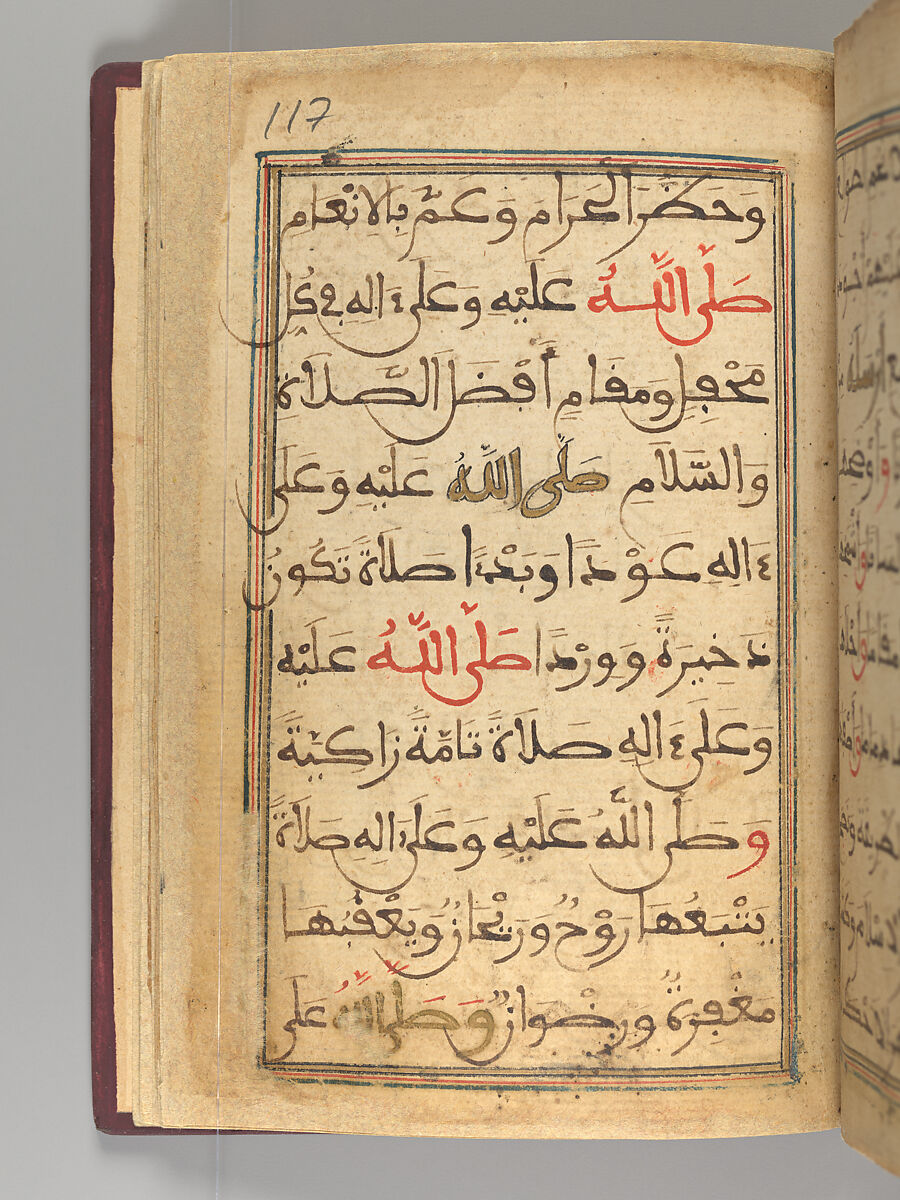 117
وَحَظَرَ الْحَرَامَ وَعَمَّ بِالِانْعَامِ
صَلَّى اللَّهُ عَلَيْهِ وَعَلَى ءَالِهِ فِي كُلِّ
مَحْفِلٍ وَمَقَامٍ أَفْضَلَ الصَّلَاةِ
وَالسَّلَامِ صَلَّى اللَّهُ عَلَيْهِ وَعَلَى
ءَالِهِ عَوْدًا وَبَدْءًا صَلَاةً تَكُونُ
ذَخِيرَةً وَوِرْدًا صَلَّى اللَّهُ عَلَيْهِ
وَعَلَى ءَالِهِ صَلَاةً تَامَّةً زَاكِيَّةً
وَصَلَّى اللَّهُ عَلَيْهِ وَعَلَى ءَالِهِ صَلَاةً
يَتْبَعُهَا رَوْحٌ وَرَيْحَانٌ وَيَعْقُبُهَا
مَغْفِرَةٌ وَرِضْوَانٌ وَصَلَّى اللَّهُ عَلَى